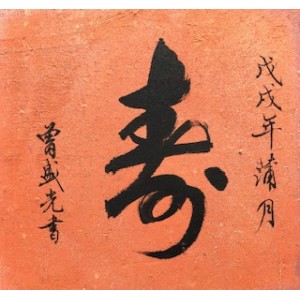 戊戌年蒲月
寿
曾盛光書